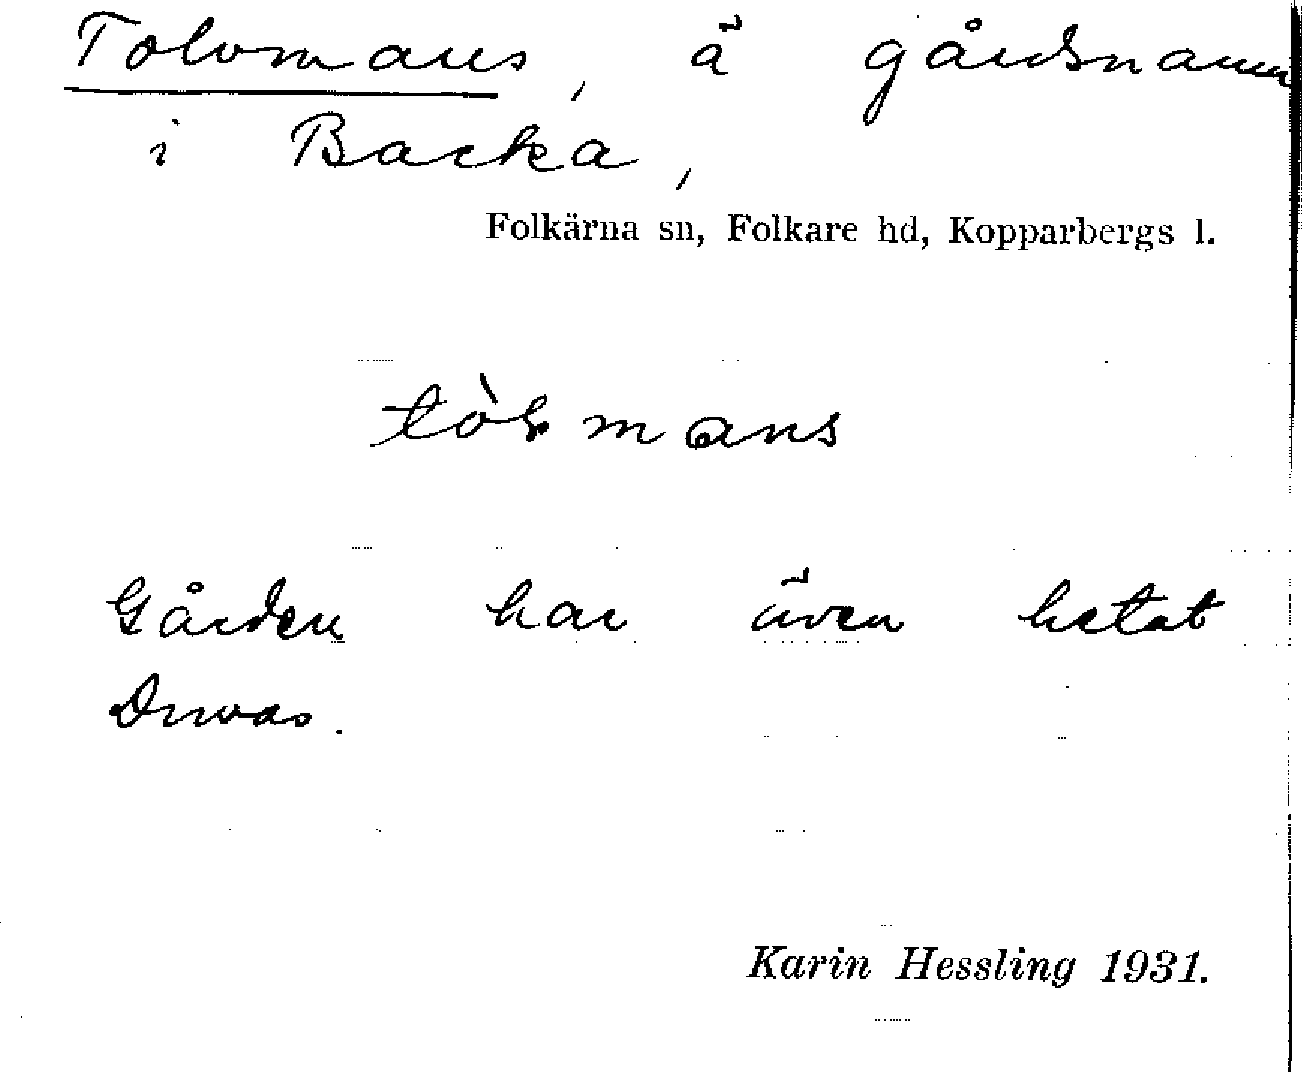 Tolvmans, ä gårdsnamn
i Backa,
Folkärna sn, Folkare hd, Kopparbergs l.
mans
Gården har även hetat
Druvas.
Karin Hessling 1931.